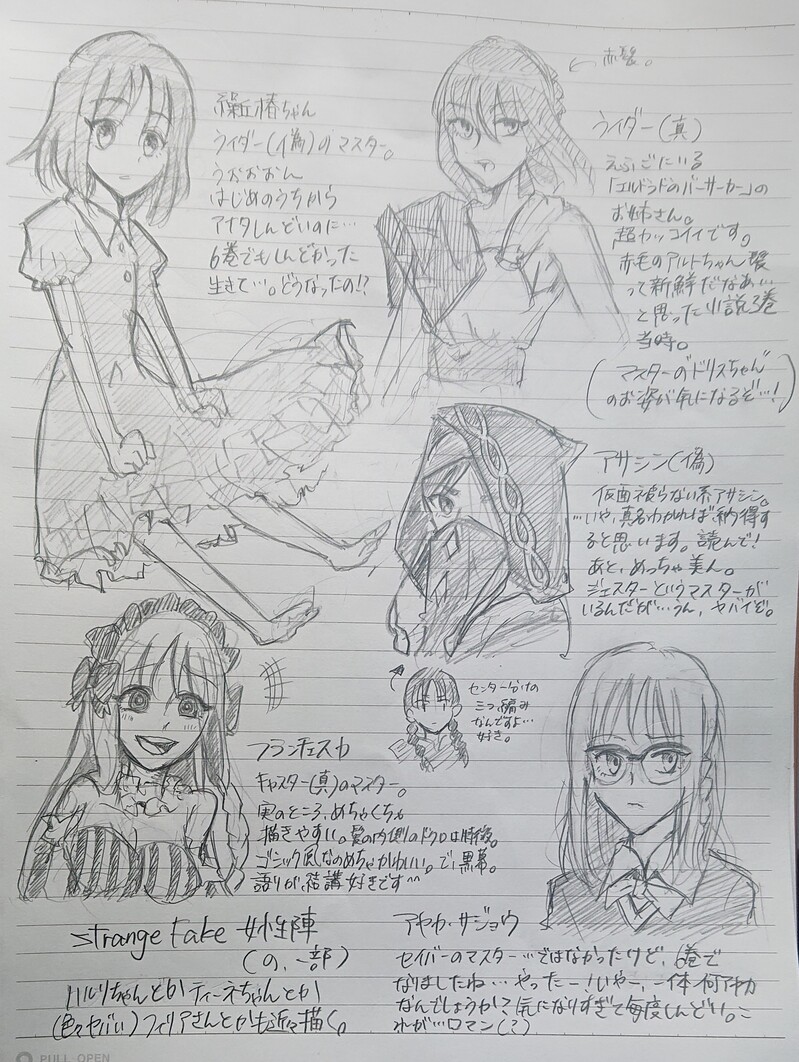 繰丘椿ちゃん
ライダー(偽)のマスター。
うおおおん
はじめのうちから
アナタしんどいのに…
6巻でもしんどかった
生きて…。どうなったの!?
←赤髪。
ライダー(真)
えふごにいる
「エルドラドのバーサーカー」の
お姉さん。
超カッコイイです。
赤毛のアルトちゃん髪
って新鮮だなあ…
と思った小説3巻
当時。
(マスターの"ドリスちゃん"
のお姿が気になるぞ…!)
アサシン(偽)
仮面被らない系アサシン。
…いや、真名わかれば納得す
ると思います。読んで!
あと、めっちゃ美人。
ジェスターというマスターが
いるんだが…うん、ヤバイぞ。
センター分けの
三つ編み
なんですよ…
好き。
フランチェスカ
キャスター(真)のマスター。
実のところ、めちゃくちゃ
描きやすい。髪の内側のドクロは特徴。
ゴシック風なのめちゃかわいい。で、黒幕。
語りが結構好きです^^
strange fake 女性陣
(の、一部)
ハルリちゃんとか ティーネちゃんとか
(色々ヤバい)フィリアさんとかも近々描く。
アヤカ・サジョウ
セイバーのマスター…ではなかったけど、6巻で
なりましたね…やったー!いやー、一体何アヤカ
なんでしょうか?気になりすぎて毎度しんどい。こ
れが…ロマン(?)
PULL OPEN